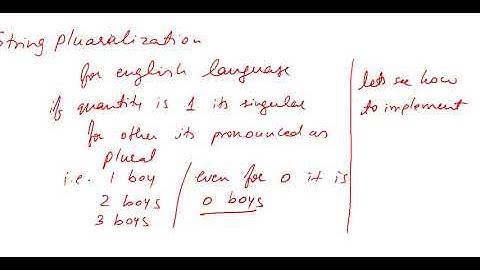 String pluaralization
for english language
if quantity is 1 its singular
for other its pronounced as
plural
i.e. 1 boy / even for 0 it is
2 boys / 0 boys
3 boys
lets see how
to implement